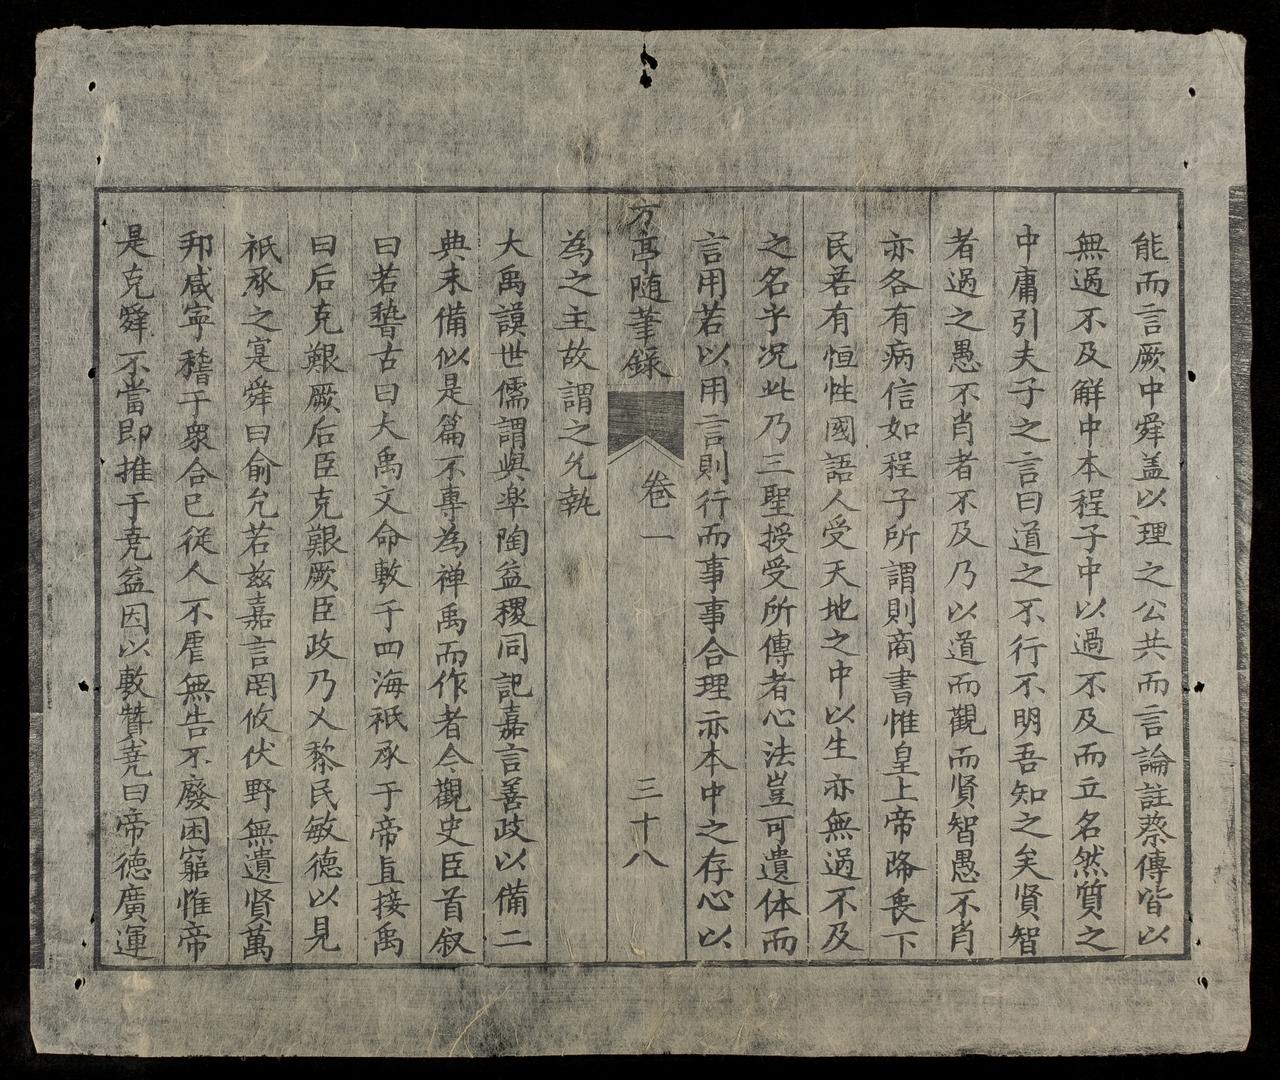 能而言厥中舜盖以理之公共而言論註蔡傳皆以
無過不及解中本程子中以過不及而立名然質之
中庸引夫子之言曰道之不行不明吾知之矣賢智
者過之愚不肖者不及乃以道而觀而賢智愚不肖
亦各有病信如程子所謂則商書惟皇上帝降衷下
民若有恒性國語人受天地之中以生亦無過不及
之名乎况此乃三聖授受所傳者心法豈可遺体而
言用若以用言則行而事事合理亦本中之存心以
万亭随筆錄 卷一 三十八
為之主故謂之允執
大禹謨世儒謂與皐陶益稷同記嘉言善政以備二
典未備似是篇不專為禅禹而作者今觀史臣首叙
曰若稽古曰大禹文命敷于四海祇承于帝直接禹
曰后克艱厥后臣克艱厥臣政乃乂黎民敏德以見
祇承之寔舜曰俞允若兹嘉言罔攸伏野無遺賢萬
邦咸寧稽于衆舍己從人不虐無告不廢困窮惟帝
是克舜不當即推于尭益因以敷贊尭曰帝德廣運